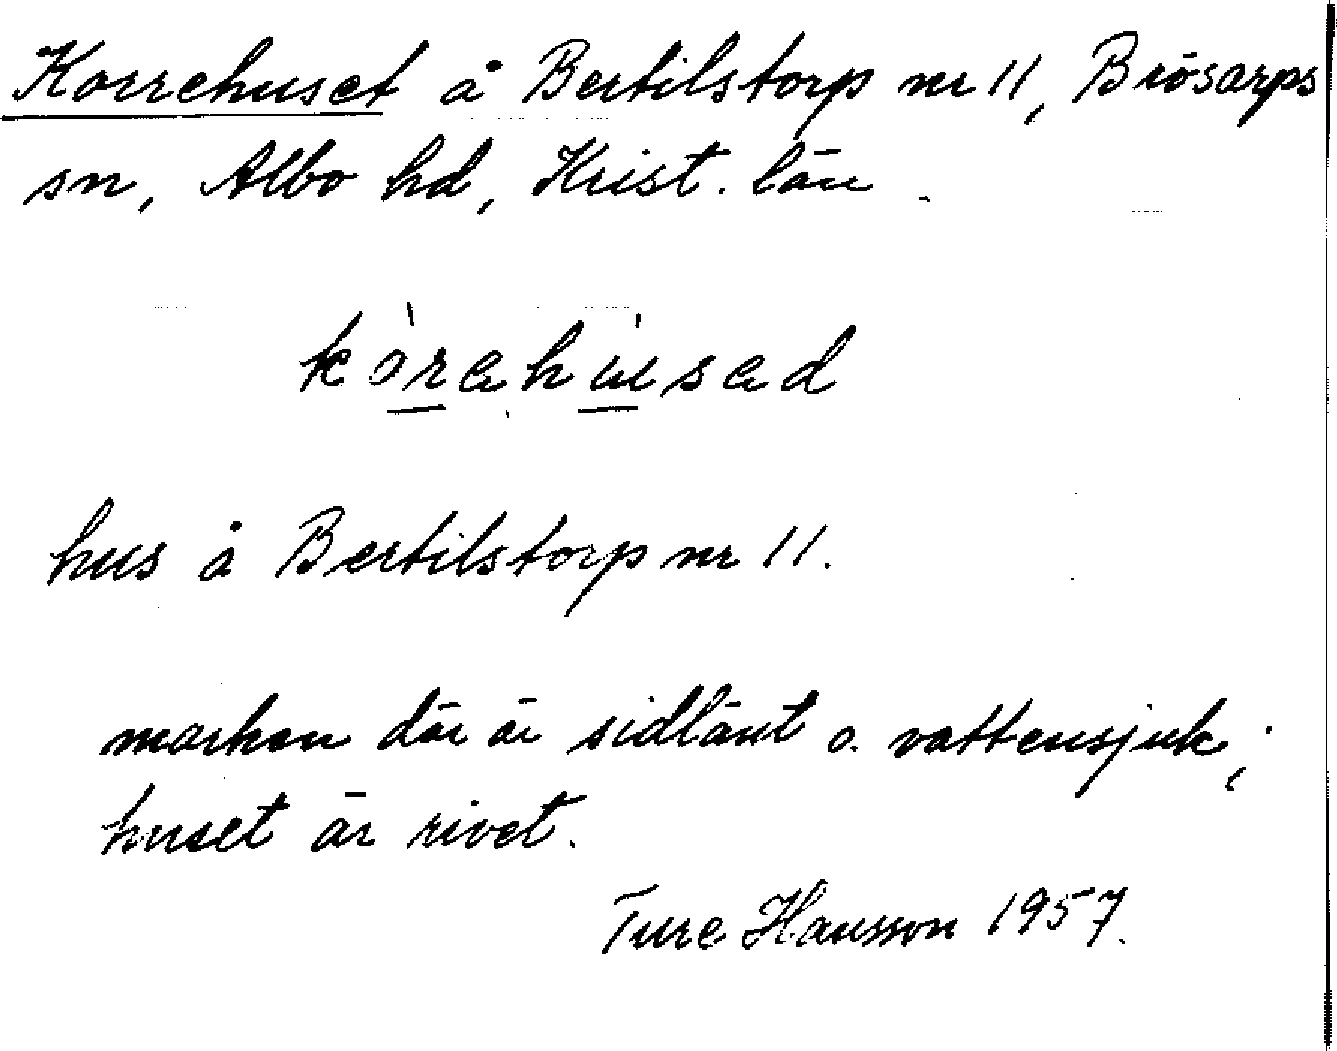 Korrehuset å Bertilstorp nr 11, Brösarps
sn, Albo hd, Krist. län.
kòrahùsad
hus å Bertilstorp nr 11.
marken där är sidlänt o. vattensjuk;
huset är rivet.
Ture Hansson 1957.